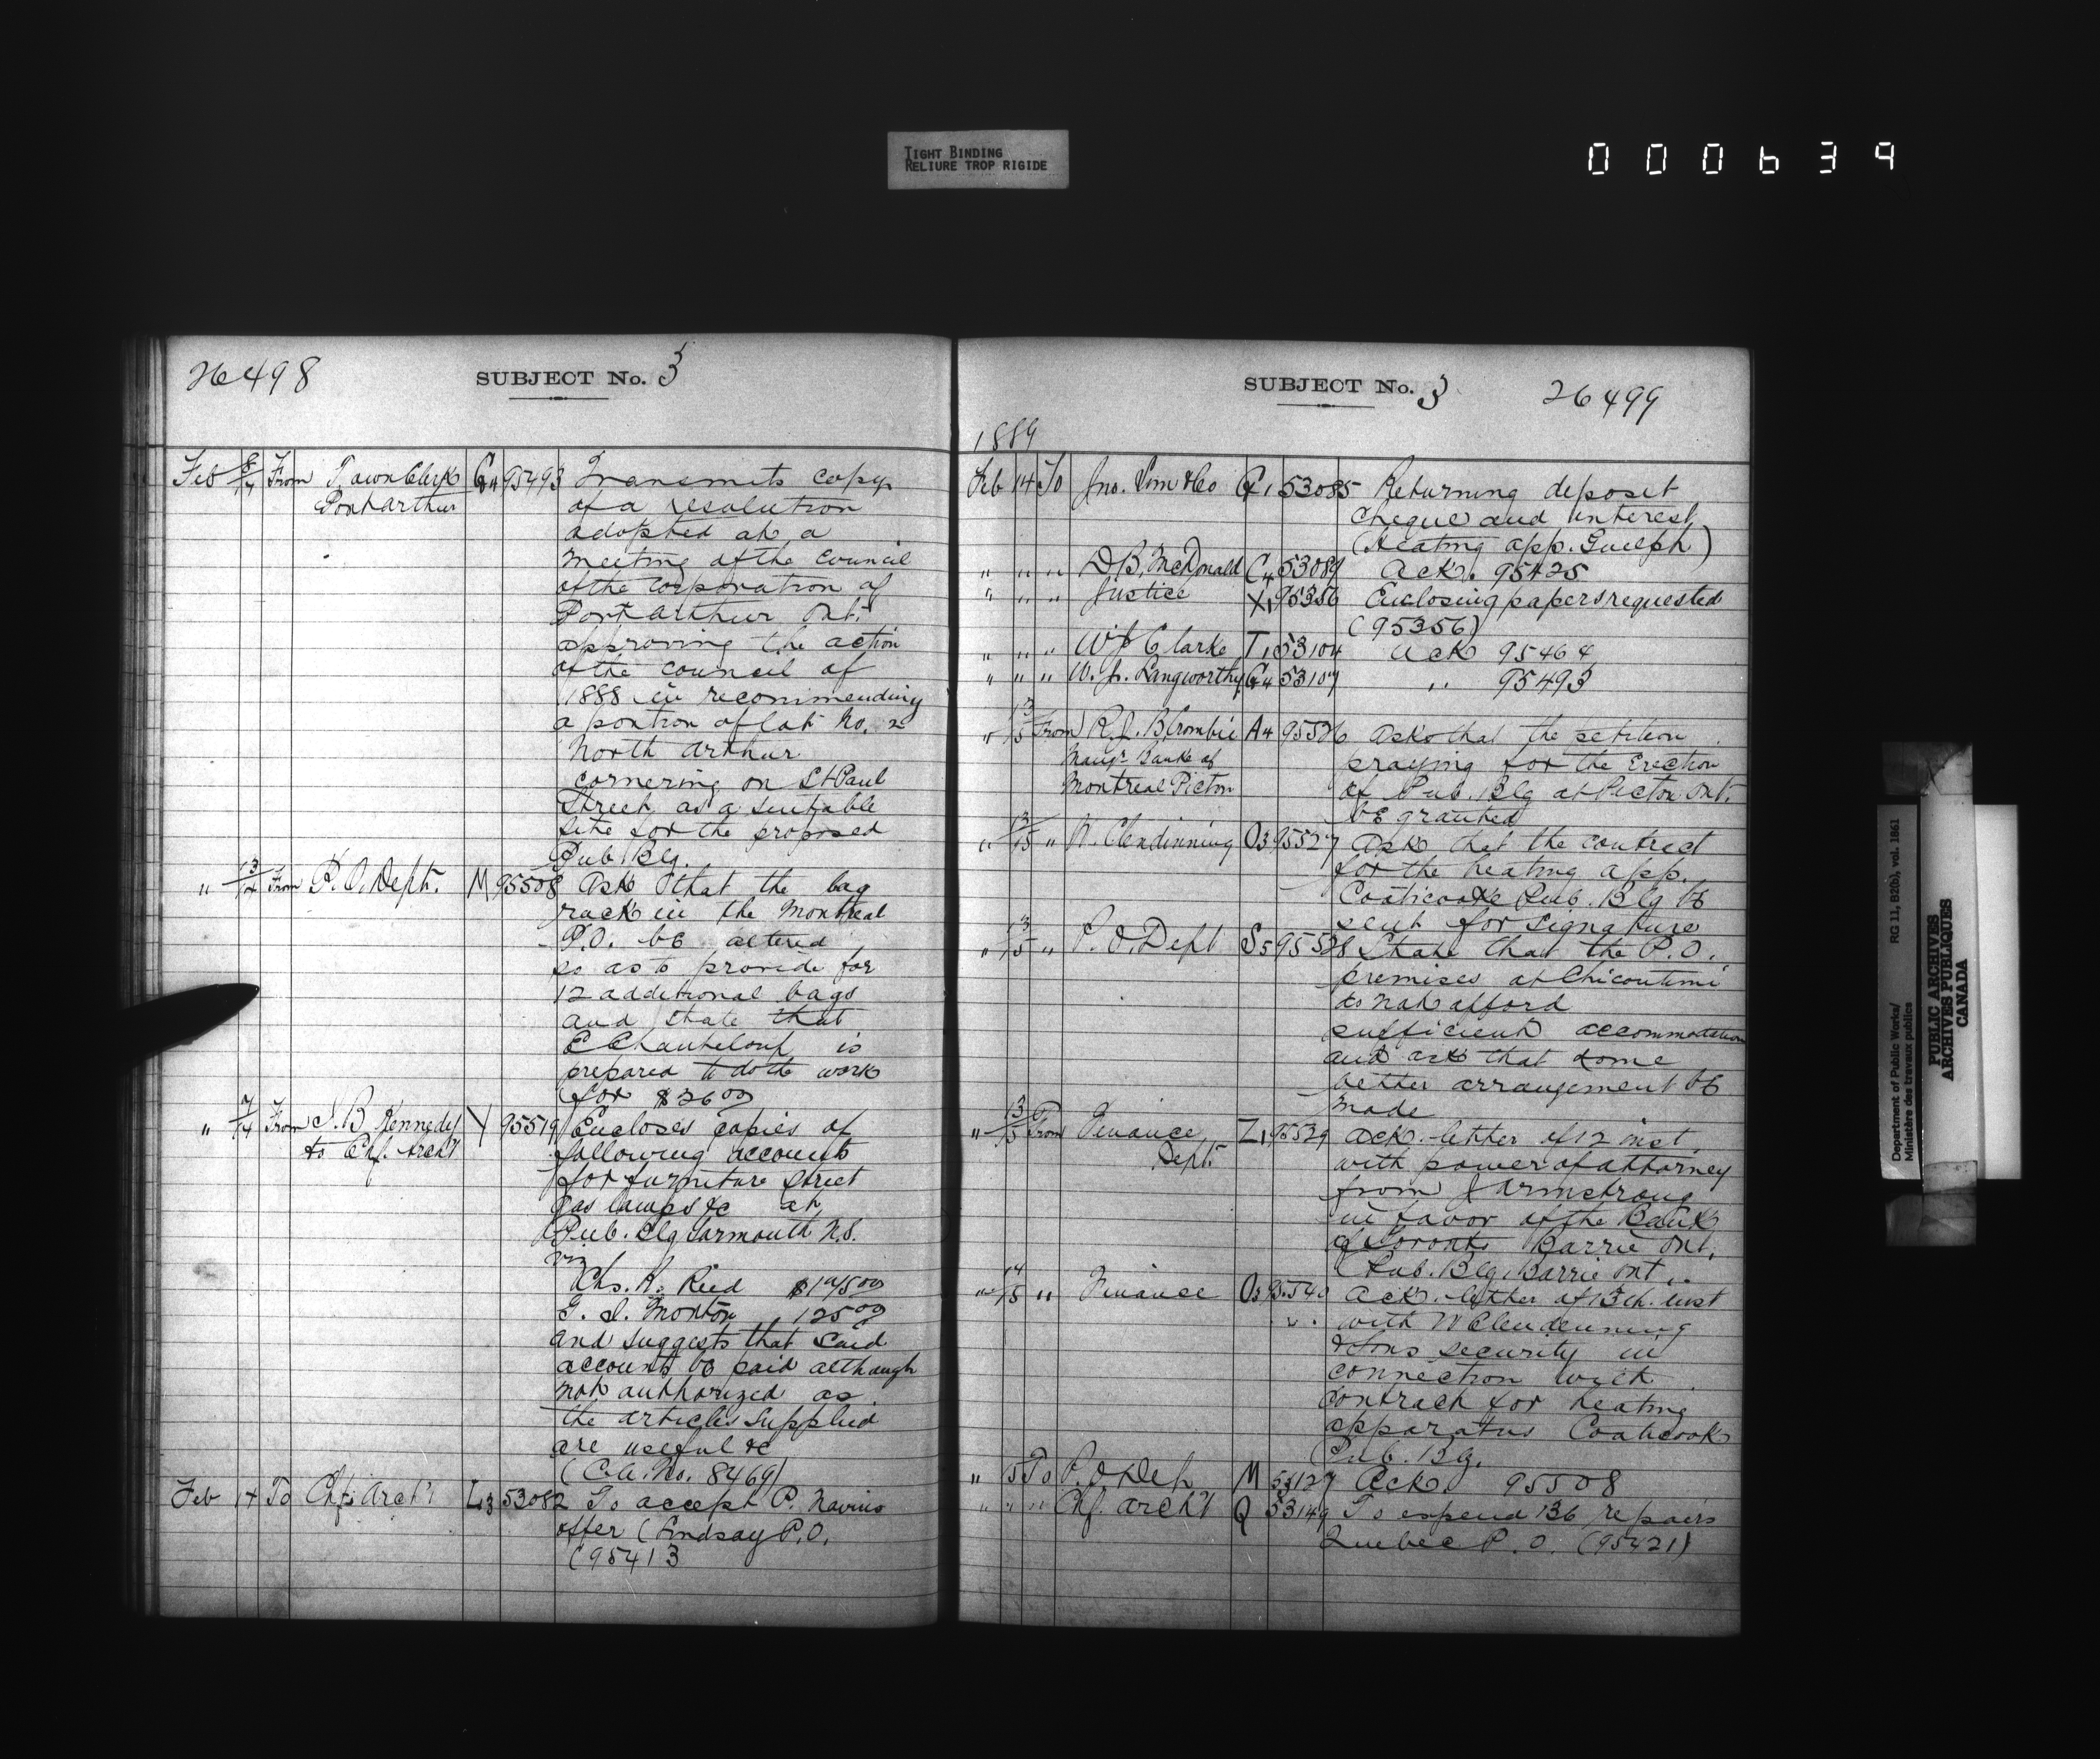 TIGHT BINDING
RELIURE TROP RIGIDE
000639
26498
SUBJECT No. 3
Feb 8/14 From Town Clerk G4 95493 Transmits copy
Port Arthur of a resolution
adopted at a
meeting of the Council
of the Corporation of
Port Arthur Ont.
approving the action
of the council of
1888 in recommending
a portion of lot No. 2
North Arthur
cornering on St Paul
Street as a suitable
site for the proposed
Pub. Blg.
" 13/14 From P.O. Dept. M 95508 Ask that the bag
rack in the Montreal
P.O. be altered
so as to provide for
12 additional bags
and state that
E Chanteloup is
prepared to do the work
for $36 00
" 7/14 From J.B Kennedy Y 95519 Encloses copies of
to Chf. Archt following accounts
for furniture street
gas lamps &c at
Pub. Blg Yarmouth N.S.
viz
Chs. R. Reed
G. I. Monton 125 00
and suggests that said
accounts be paid although
not authorized as
the articles supplied
are useful &c
(C.A. No. 8469)
Feb 14 To Chf. Arch't L3 53082 To accept P. Navins
offer (Lindsay P.O.
(95413
SUBJECT No. 3
26499
1889
Feb 14 To Jno. Sim & Co G1 53085 Returning deposit
cheque and interest
(heating app. Guelph)
" " " D B. McDonald C4 53089 Ack. 95425
" " " Justice X1 95356 Enclosing papers requested
(95356)
" " " W J Clarke T1 53104 Ack 95464
" " " W. J. Langworthy G4 53107 " 95493
" 13/15 From R. J. B Crombie A4 95526 Asks that the petition
Mangr. Bank of praying for the Erection
Montreal Picton of Pub. Blg at Picton Ont.
be granted
" 13/15 " W. Clendinning O3 95527 Ask that the contract
for the heating app.
Coaticooke Pub. Blg be
sent for signature
" 13/15 " P. O. Dept S5 95528 State that the P.O.
premises at Chicoutimi
do not afford
sufficient accommodation
and ask that some
better arrangement be
made
" 13/15 From Finance Z1 95529 Ack. letter of 12 inst
Dept. with power of attorney
from J Armstrong
in favor of the Bank
of Toronto Barrie Ont.
(Pub. Blg. Barrie Ont "
" 14/15 " Finance O3 95540 Ack. letter of 13th. inst
with W Clendenning
& Sons security in
connection with
contract for heating
apparatus Coaticook
Pub. Blg.
" 15 To P. O Dep M 53127 Ack. 95508
" " " Chf. Arch't Q 53149 To expend 136 repairs
Quebec P. O. (95421)
Department of Public Works/ RG 11, B2(b), vol. 1861
Ministère des travaux publics
PUBLIC ARCHIVES
ARCHIVES PUBLIQUES
CANADA